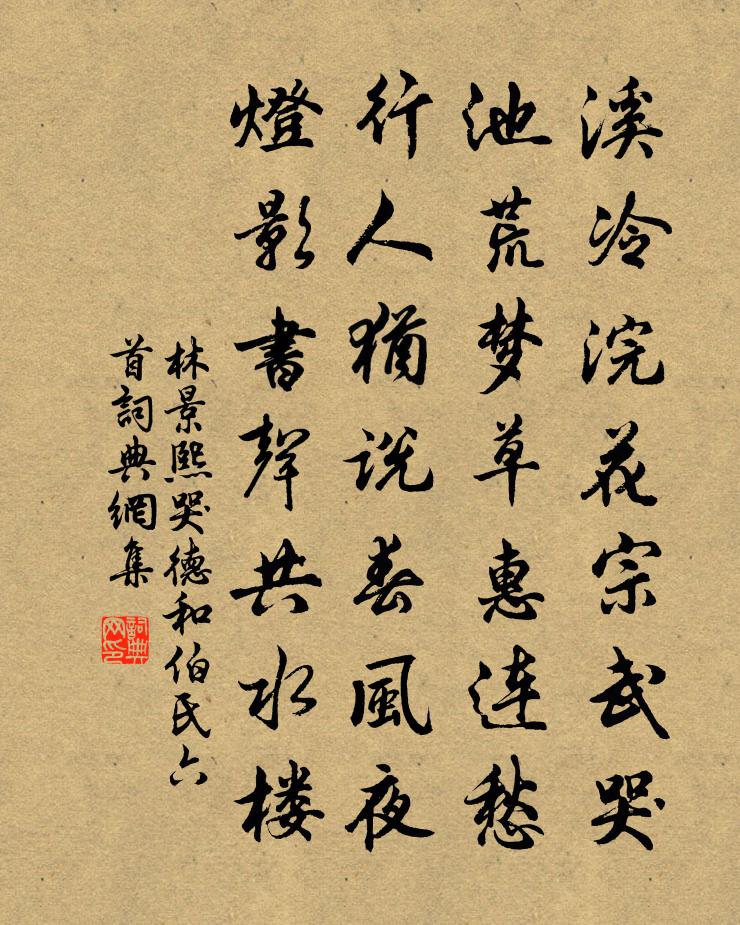 溪冷浣花宗武哭
池荒梦草惠连愁
行人猶说春風夜
燈影書聲共水楼
林景熙哭德和伯氏六
首詞典網集
詞典
网印